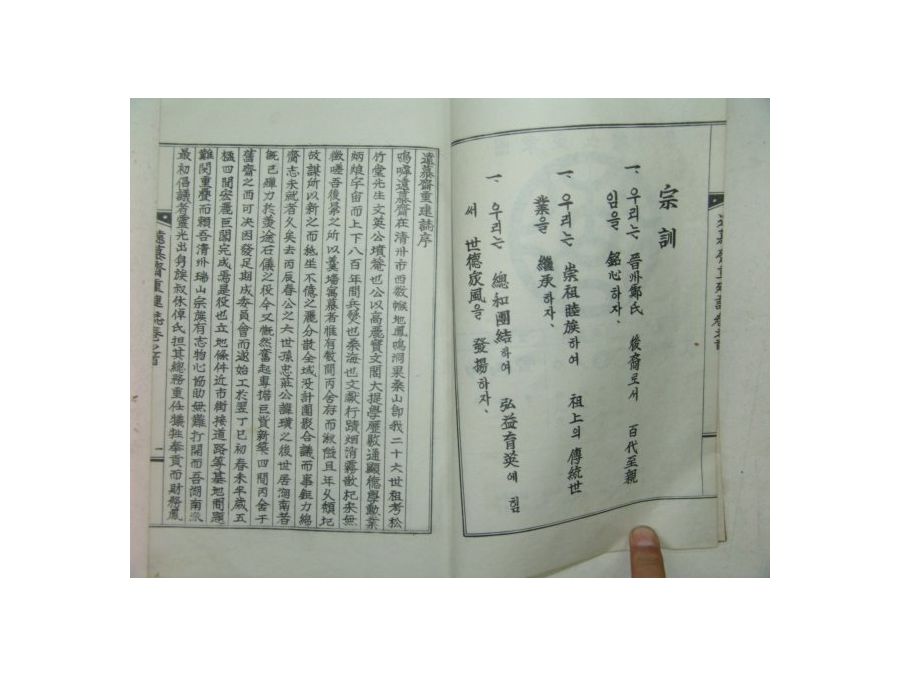 宗訓
一、우리는 晉州鄭氏 後裔로서 百代至親
임을 銘心하자、
一、우리는 崇祖睦族하여 祖上의 傳統世
業을 繼承하자、
一、우리는 總和團結하여 弘益育英에 힘
써 世德家風을 發揚하자、
遠慕齋重建誌序
嗚呼遠慕齋在清州市西數帿地鳳鳴洞果桑山卽我二十六世祖考松
竹堂先生文英公墳菴也公以高麗寶文閣大提學歷敭通顯德學勳業
炳煥宇宙而上下八百年間兵燹也桑海也文獻行蹟烟消霧散杞宋無
徵嗟吾後晜之所以羹墻寓慕者惟有數間丙舍存而湫隘且年久頹圮
故謀所以新之而孫生不億之麗分散全域没計團聚合議而事鉅力綿
齋志未就者久矣去丙辰春公之六世孫忠莊公諱璜之後世居湖南若
旣已殫力於羨途石儀之役今又慨然奮起專擔巨貲新築四間丙舍于
舊齋之西可決因發足期成委員會而遂始工於翌丁巳初春未半歲五
楹四間宏麗巨閣完成焉是役也立地條件近市街接道路等基地問題
難關重疊而賴吾清州瑞山宗族有志物心協助無難打開而吾湖南派
最初倡議者靈光出身族叔休倬氏担其總務重任犧牲奉貢而財務鳳
遠慕齋重建誌卷之首
一